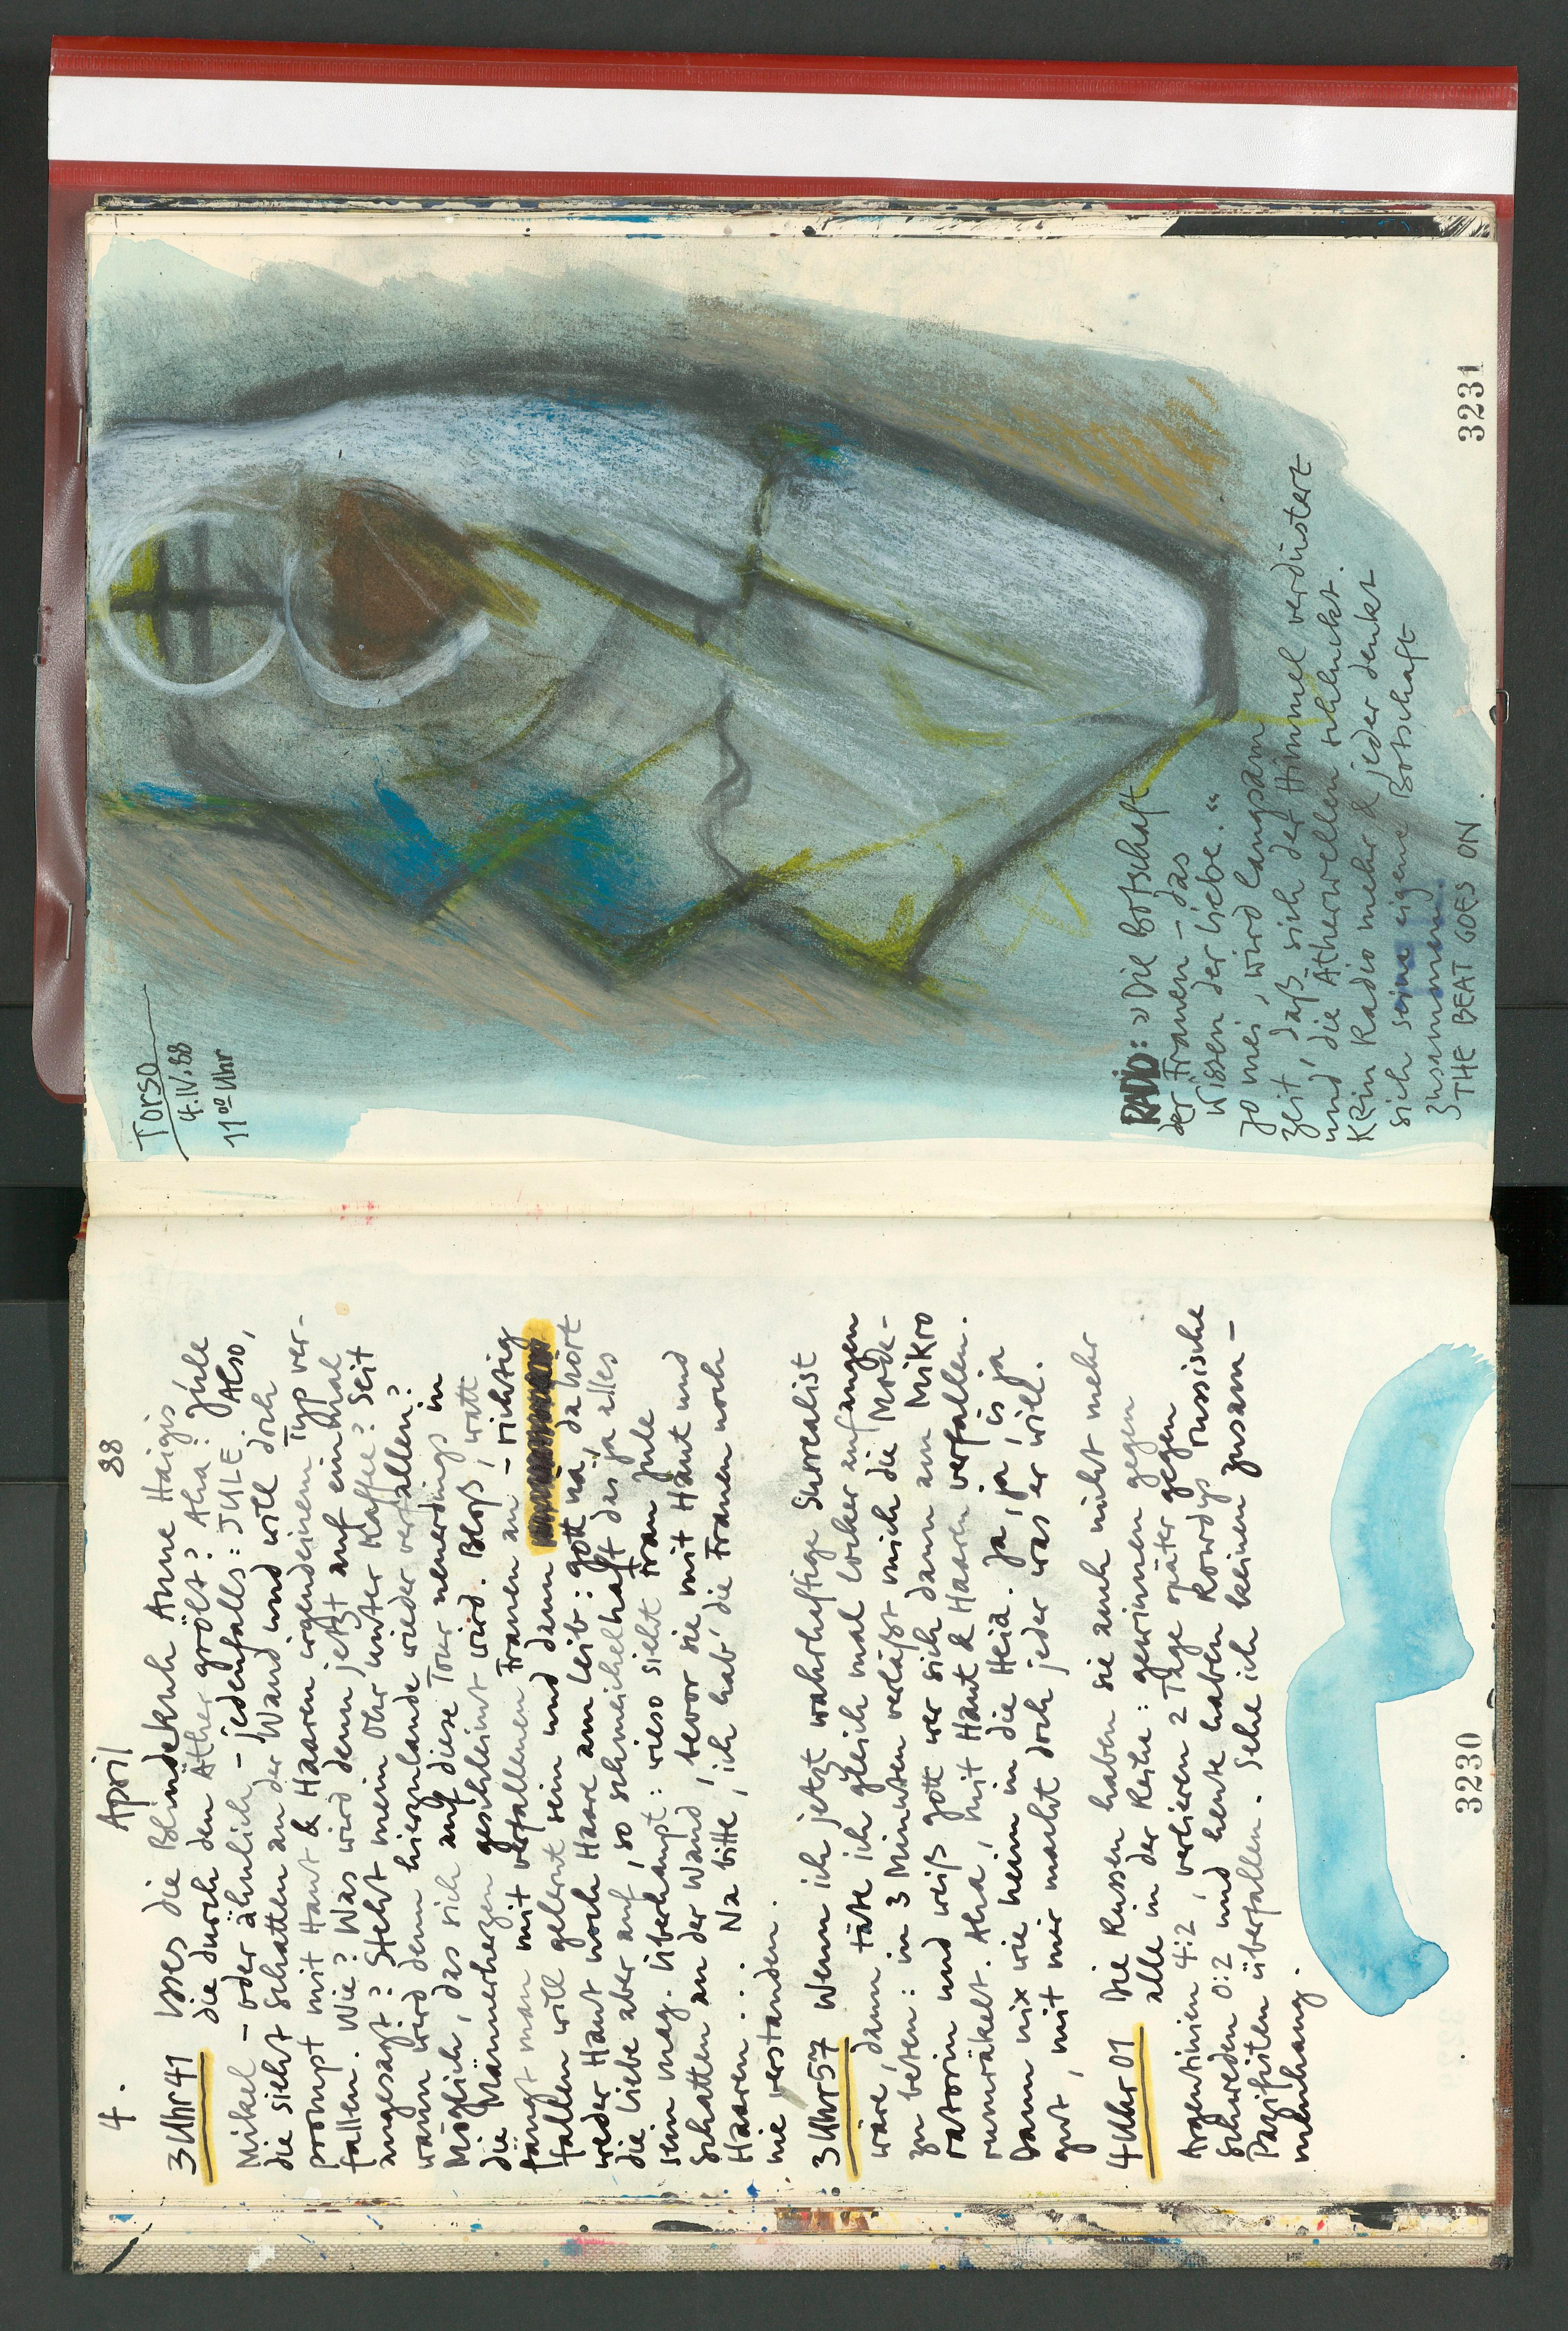 4. April 88
3 Uhr 41 Isses die Blindekuh Änne Haigis
die durch den Äther grölt? Aha! Jule
Mikel – oder ähnlich – jedenfalls: JULE. Also,
die sieht Schatten an der Wand und will doch
prompt mit Haut & Haaren irgendeinem Typ ver-
fallen. Wie? Was wird denn jetzt auf einmal
angesagt? Steht mein Ohr unter Kaffee? Seit
wann wird denn hierzulande wieder verfallen?
Möglich, das sich auf diese Tour neuerdings in
die Männerherzen geschleimt wird. Bloß, watt
fängt man mit verfallenen Frauen an – richtig
fallen will gelernt sein und dann
weder Haut noch Haare am Leib: gott nä, da hört
die Liebe aber auf, so schmeichelhaft das ja alles
sein mag. Überhaupt: wieso sieht Frau Jule
Schatten an der Wand, bevor sie mit Haut und
Haaren ... Na bitte, ich hab' die Frauen noch
nie verstanden.
3 Uhr 57 Wenn ich jetzt wahrhaftige Surrealist
wäre, dann täte ich gleich mal locker anfangen
zu beten: in 3 Minuten verläßt mich die Mode-
ratorin und weiß gott wer sich dann am Mikro
rumräkelt. Aha, mit Haut & Haaren verfallen.
Dann nix wie heim in die Heia. Ja, ja, ja, is ja
gut, mit mir macht doch jeder was er will.
4 Uhr 01 Die Russen haben sie auch nicht mehr
alle in der Reihe: gewinnen gegen
Argentinien 4:2, verlieren 2 Tage später gegen
Schweden 0:2 und heute haben Rowdys russische
Pazifisten überfallen. Sehe ich keinen Zusam-
menhang.
3230
Torso
4.IV.88
11⁰⁰ Uhr
RADIO: »Die Botschaft
der Frauen – das
Wissen der Liebe.“
Jo mei, wird langsam
Zeit, daß sich der Himmel verdüstert
und die Ätherwellen schluckt.
Kein Radio mehr & jeder denkt
sich seine eigene Botschaft
zusammen.
THE BEAT GOES ON.
3231